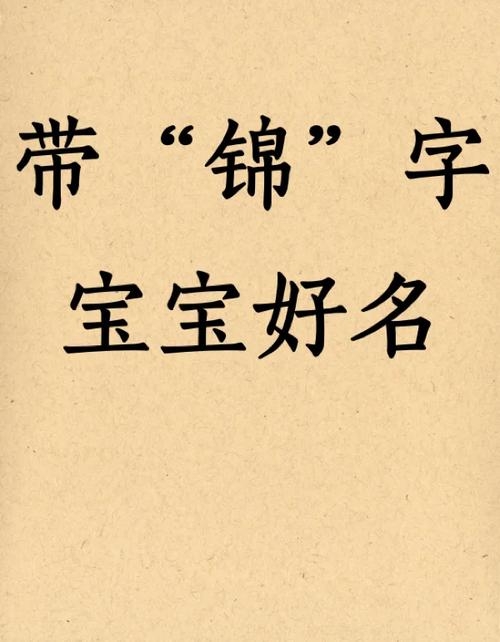 带“锦”字
宝宝好名